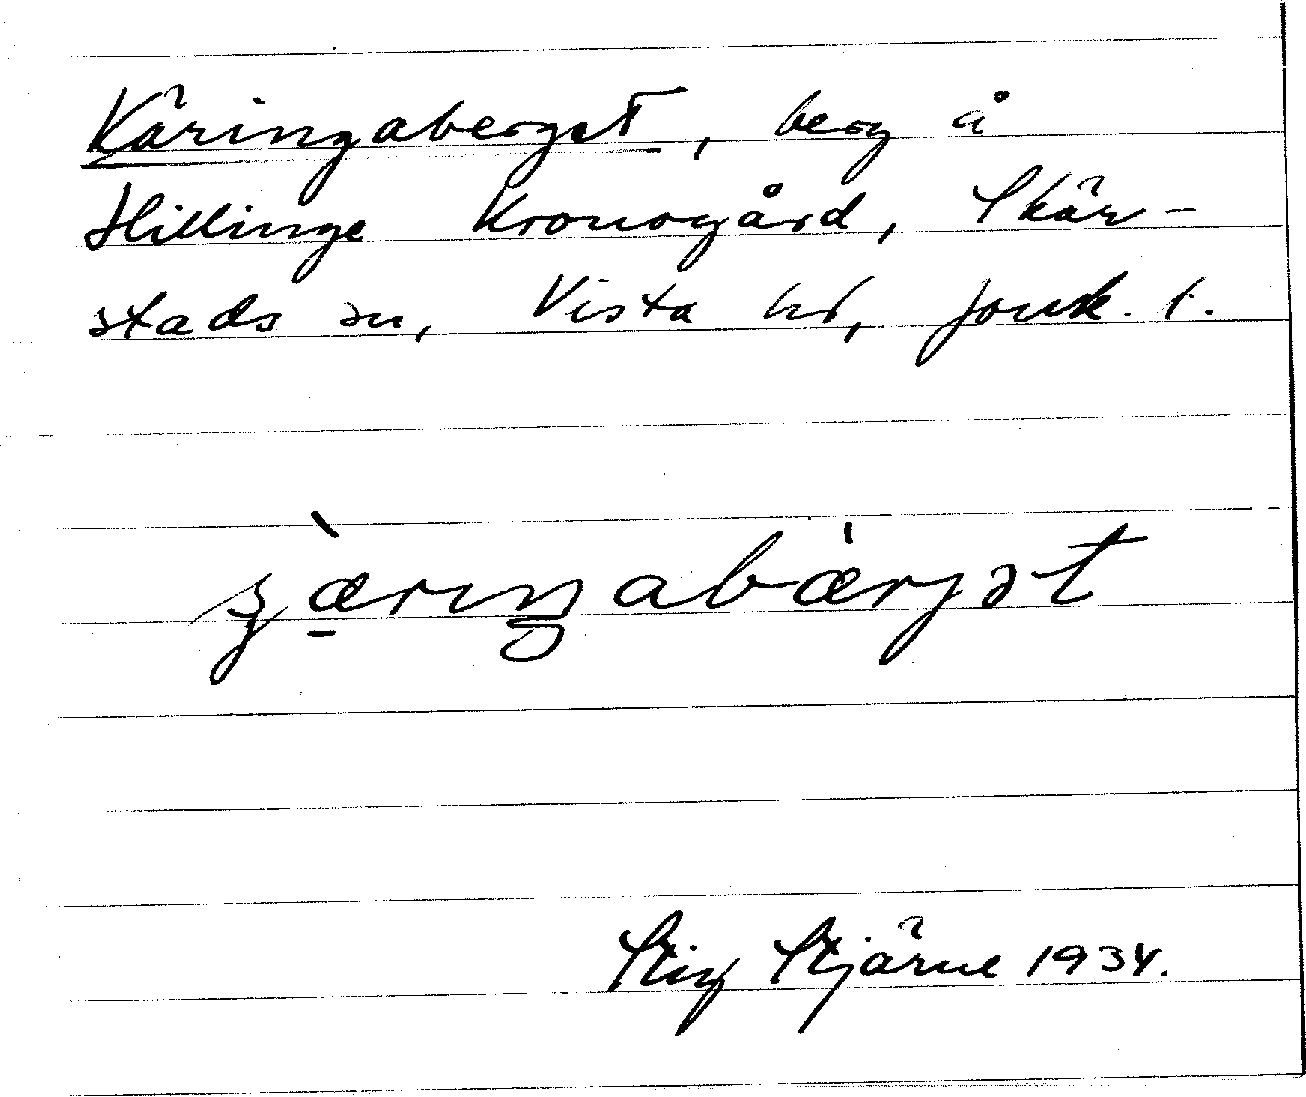 Käringaberget, berg å
Hillinge Kronogård, Skär-
stads sn, Vista hd, Jönk. l.
Stig Stjärne 1934.